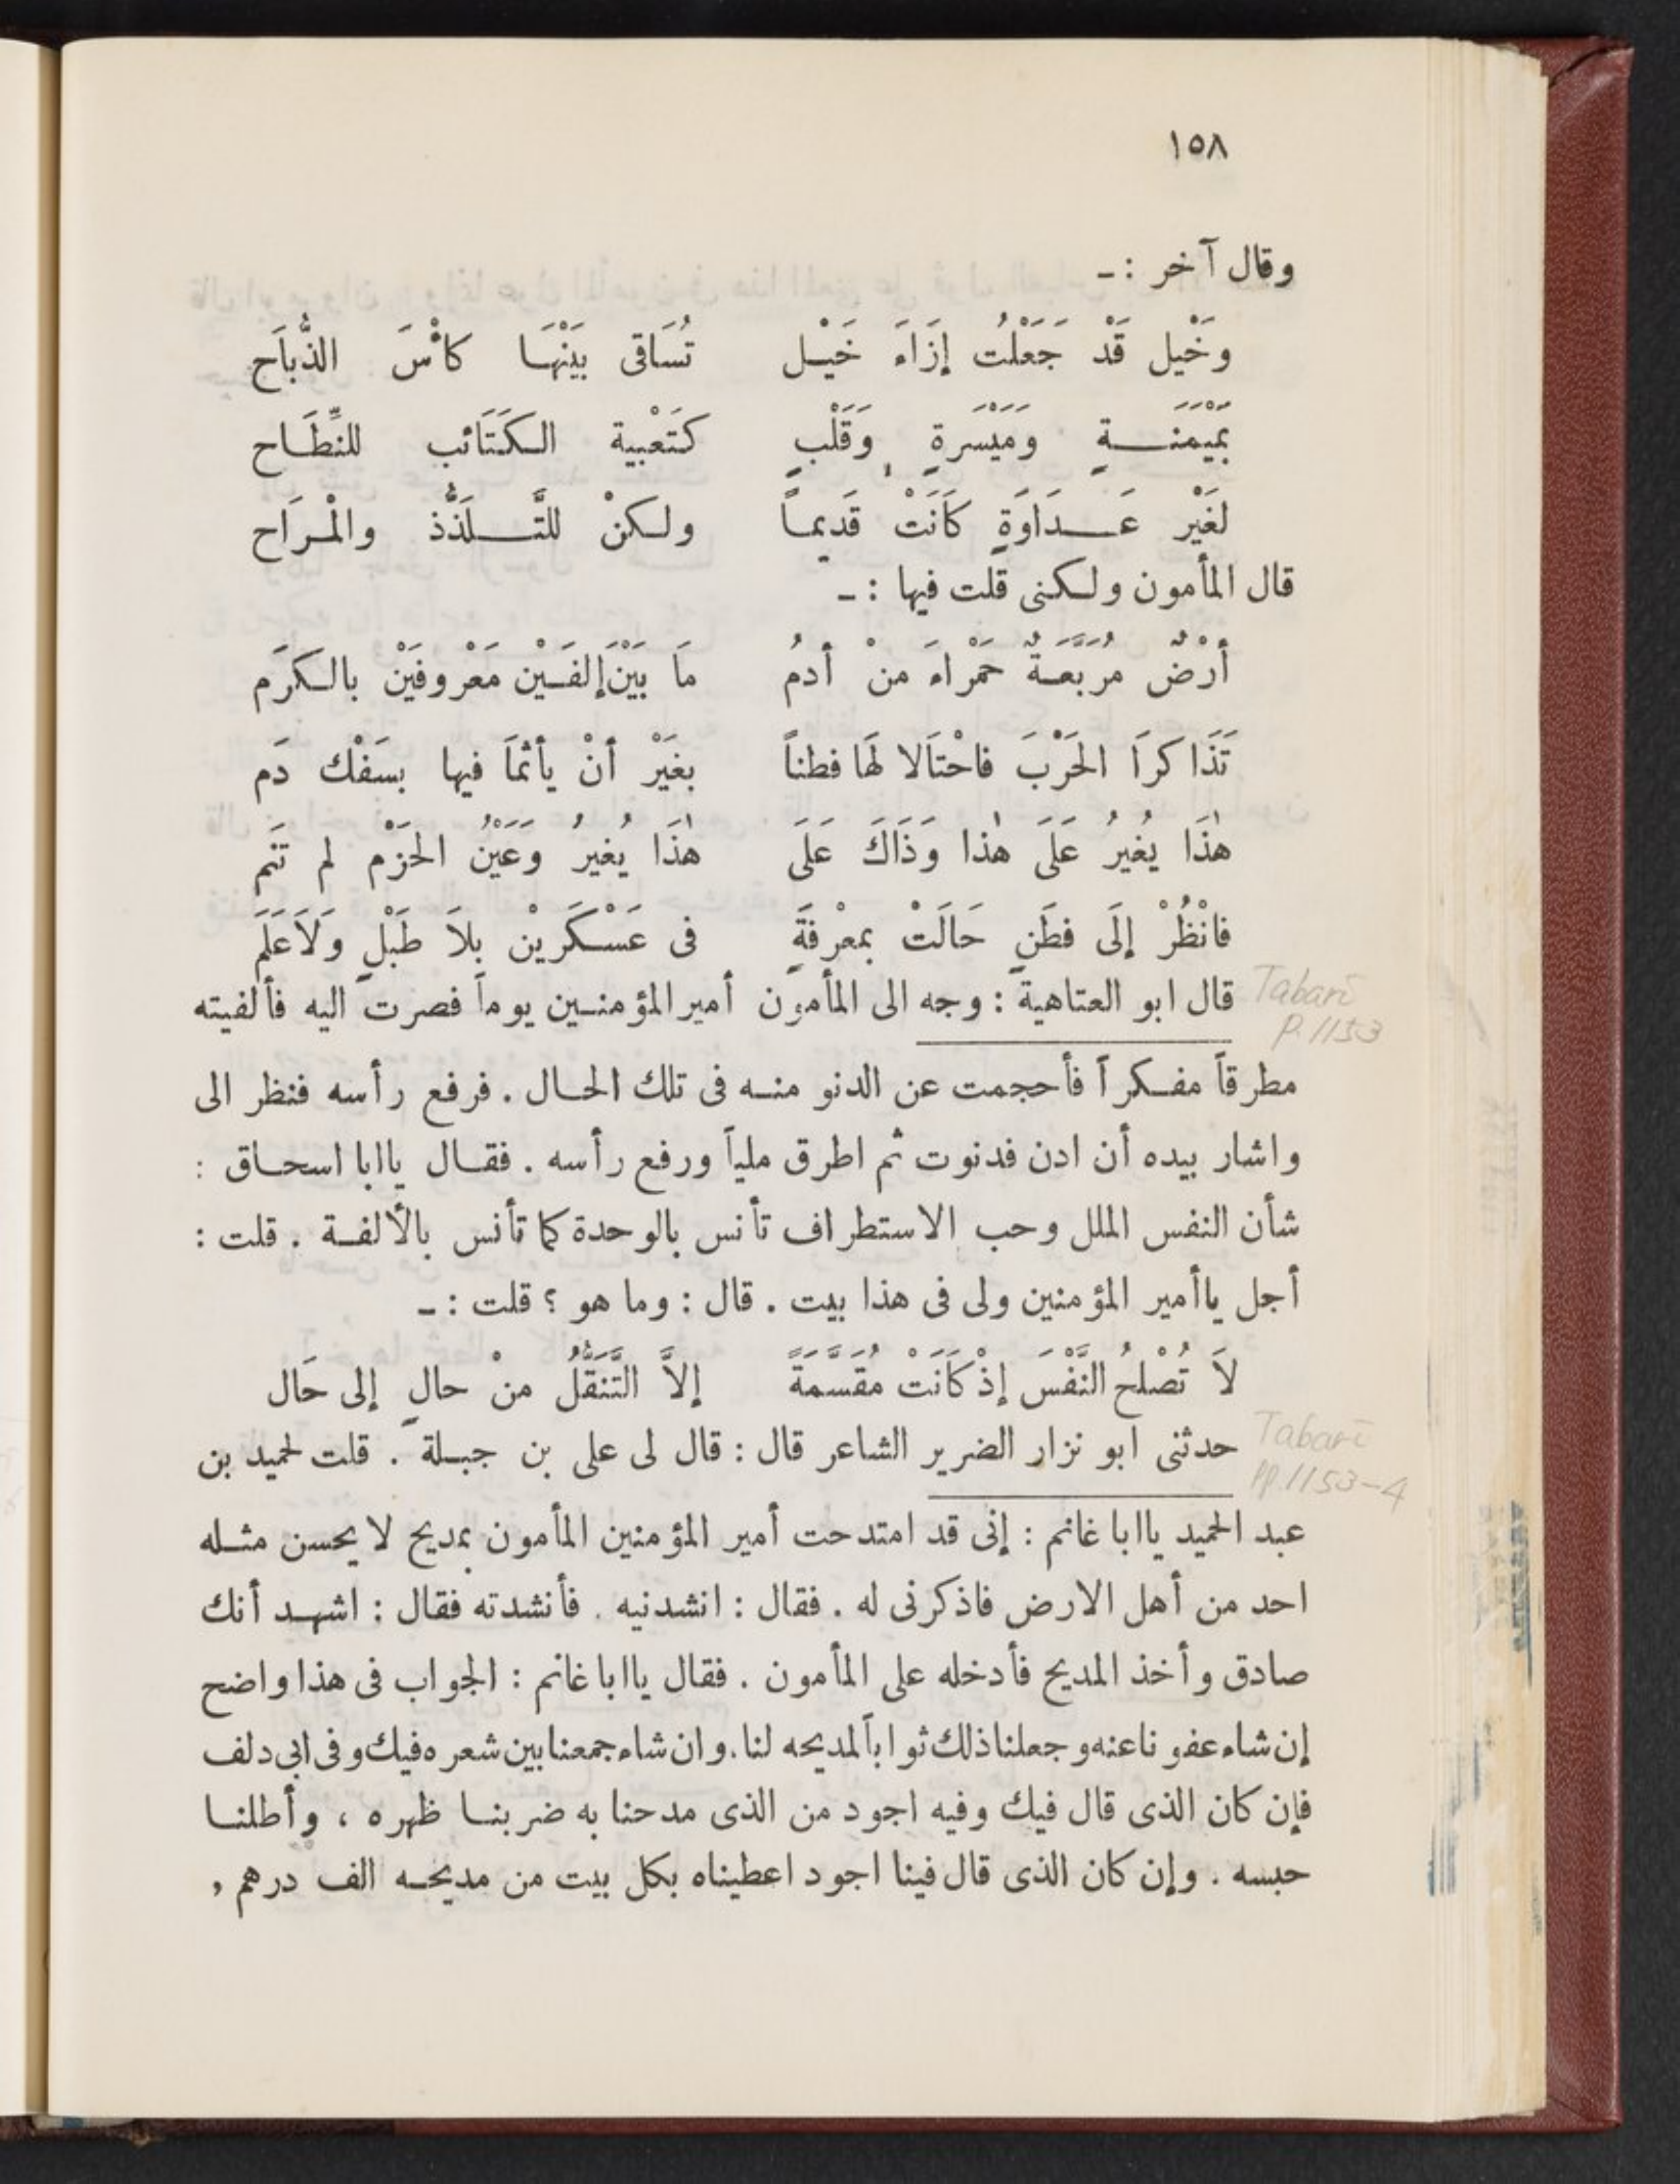 ١٥٨
وقال آخر :ـ
وَخَيْل قَدْ جَعَلْتُ إزَاءَ خَيْـل تُسَاقى بَيْنَهَا كأْسَ الذُّبَاَح
بَمَيْمَنَــةٍ وَمَيْسَرةٍ وَقَلْبٍ كَتَعْبية الـكَتَائب للنِّطَـاح
لَغَيْر عَــدَاوَةٍ كَانَتْ قَديمـاً ولـكنْ للتَّــلَذُّذ والْمـرَاح
قال المأمون ولـكنى قلت فيها :ـ
أرْضٌ مُرَبَّعَـةٌ حَمْراءَ منْ أدمُ مَا بَيْنَ إلفَـيْن مَعْروفَيْن بالـكَرَم
تَذَا كرَا الحَرْبَ فاحْتَالا لَهَا فطناً بغَيْر أنْ يأثَمَا فيها بسَفْك دَم
هٰذَا يُغيرُ عَلَى هٰذا وَذَاكَ عَلَى هٰذَا يُغيرُ وَعَيْنُ الحَزْم لم تَنَم
فانْظُرْ إلَى فطَنٍ حَالَتْ بمعْرفَةٍ فى عَسْـكَرين بلاَ طَبْلٍ وَلاَعَلَم
Tabarī
p. 1153
قال ابو العتاهية : وجه الى المأمون أمير المؤمنـين يوماً فصرت اليه فألفيته
مطرقاً مفـكراً فأحجمت عن الدنو منـه فى تلك الحـال . فرفع رأسه فنظر الى
واشار بيده أن ادن فدنوت ثم اطرق ملياً ورفع رأسه . فقـال يا ابا اسحـاق :
شأن النفس الملل وحب الاستطراف تأنس بالوحدة كما تأنس بالألفـة . قلت :
أجل يا أمير المؤمنين ولى فى هذا بيت . قال : وما هو ؟ قلت :ـ
لاَ تُصْلحُ النَّفْسَ إذْ كَانَتْ مُقَسَّمَةً إلاَّ التَّنَقُّلُ منْ حالٍ إلى حَال
Tabarī
pp. 1153-4
حدثنى ابو نزار الضرير الشاعر قال : قال لى على بن جبـلة . قلت لحميد بن
عبد الحميد يا ابا غانم : إنى قد امتدحت أمير المؤمنين المأمون بمديح لا يحسن مثـله
احد من أهل الارض فاذكرنى له . فقال : انشدنيه . فأنشدته فقال : اشهـد أنك
صادق وأخذ المديح فأدخله على المأمون . فقال يا ابا غانم : الجواب فى هذا واضح
إن شاء عفونا عنه وجعلنا ذلك ثواباً لمديحه لنا. وان شاء جمعنا بين شعره فيك وفى ابى دلف
فإن كان الذى قال فيك وفيه اجود من الذى مدحنا به ضربنـا ظهره ، وأطلنـا
حبسه . وإن كان الذى قال فينا اجود اعطيناه بكل بيت من مديحـه الف درهم ,